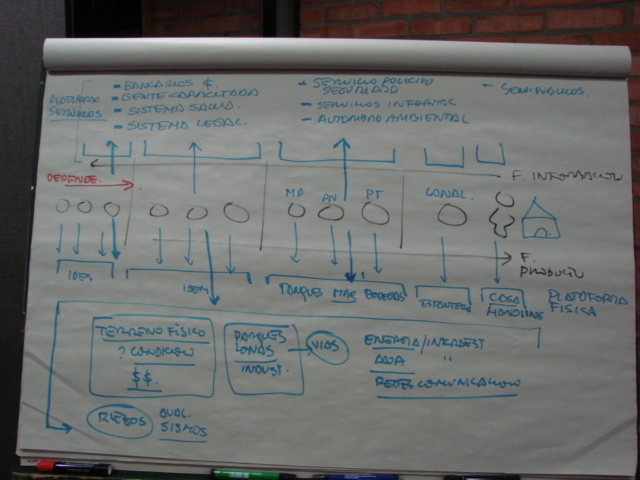 PLATAFORMA
SERVICIOS
- BANCARIOS $.
- GENTE CAPACITADA
- SISTEMA SALUD.
- SISTEMA LEGAL.
- SERVICIO POLICIVO
SEGURIDAD
- SERVICIOS INFORMAL
- AUTORIDAD AMBIENTAL
- SEMIPUBLICOS.
DEPENDE.
F. INFORMACION
MP PN PT CANAL.
F.
PRODUCTO
IDEM IDEM TANQUES MAQ BODEGAS ESTANTERIA COSA
HANDLING
PLATAFORMA
FISICA
TERRENO FÍSICO
? CONDICION
$$.
PARQUES
ZONAS
INDUST.
VIAS
ENERGIA/INTERNET
AGUA "
REDES COMUNICACION
RIEZGOS
SISMOS